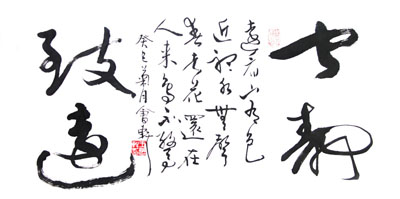 宁静
遠看山有色
近聽水無聲
春去花還在
人来鳥不驚
癸巳菊月
致遠